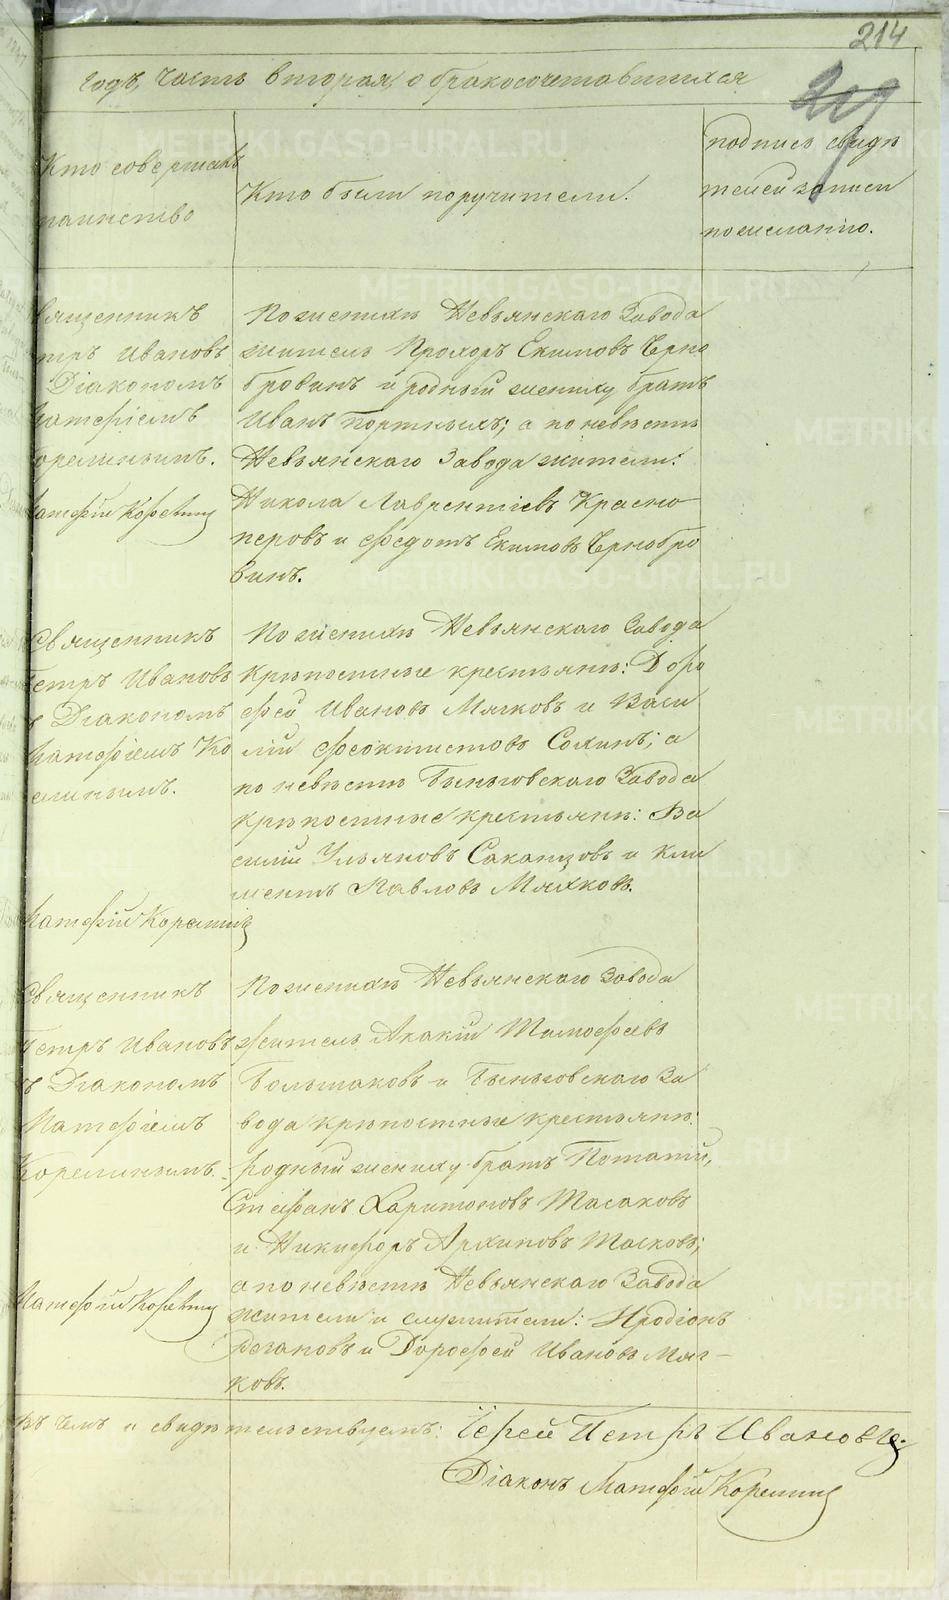 214
219
годъ, часть вторая, о бракосочетавшихся
Кто совершалъ
таинство
Кто были поручители.
подпись свидѣ
телей записи
по желанію.
Священникъ
Петръ Ивановъ
Діакономъ
Матфіемъ
Корелинымъ.
Матфій Корелинъ
По женихѣ Невьянскаго Завода
житель Прохоръ Екимовъ Черно
бровинъ и родный жениху братъ
Иванъ Портныхъ; а по невѣстѣ
Невьянскаго Завода жители:
Никола Лаврентіевъ Красно
перовъ и Федотъ Екимовъ Чернобро
винъ.
Священникъ
Петръ Ивановъ
съ Діакономъ
Матфіемъ Ко
релинымъ.
Матфій Корелинъ
По женихѣ Невьянскаго Завода
крѣпостные крестьяне: Доро
фей Ивановъ Мягковъ и Васи
лій Феоктистовъ Солинъ; а
по невѣстѣ Быньговскаго Завода
крѣпостные крестьяне: Ва
силій Ульяновъ Саканцовъ и Кли
ментъ Павловъ Мягковъ.
Священникъ
Петръ Ивановъ
съ Діакономъ
Матфіемъ
Корелинымъ.
Матфій Корелинъ
По женихѣ Невьянскаго Завода
житель Акакій Тимофеевъ
Большаковъ и Быньговскаго За
вода крѣпостные крестьяне:
родный жениху братъ Потапій,
Стефанъ Харитоновъ Масаковъ
и Никифоръ Архиповъ Масковъ;
а по невѣстѣ Невьянскаго Завода
жители и служители: Иродіонъ
Рогановъ и Дорофей Ивановъ Мяг-
ковъ.
Въ чемъ и свидѣтельствуемъ: Іерей Петръ Ивановъ.
Діаконъ Матфій Корелинъ
METRIKI.GASO-URAL.RU